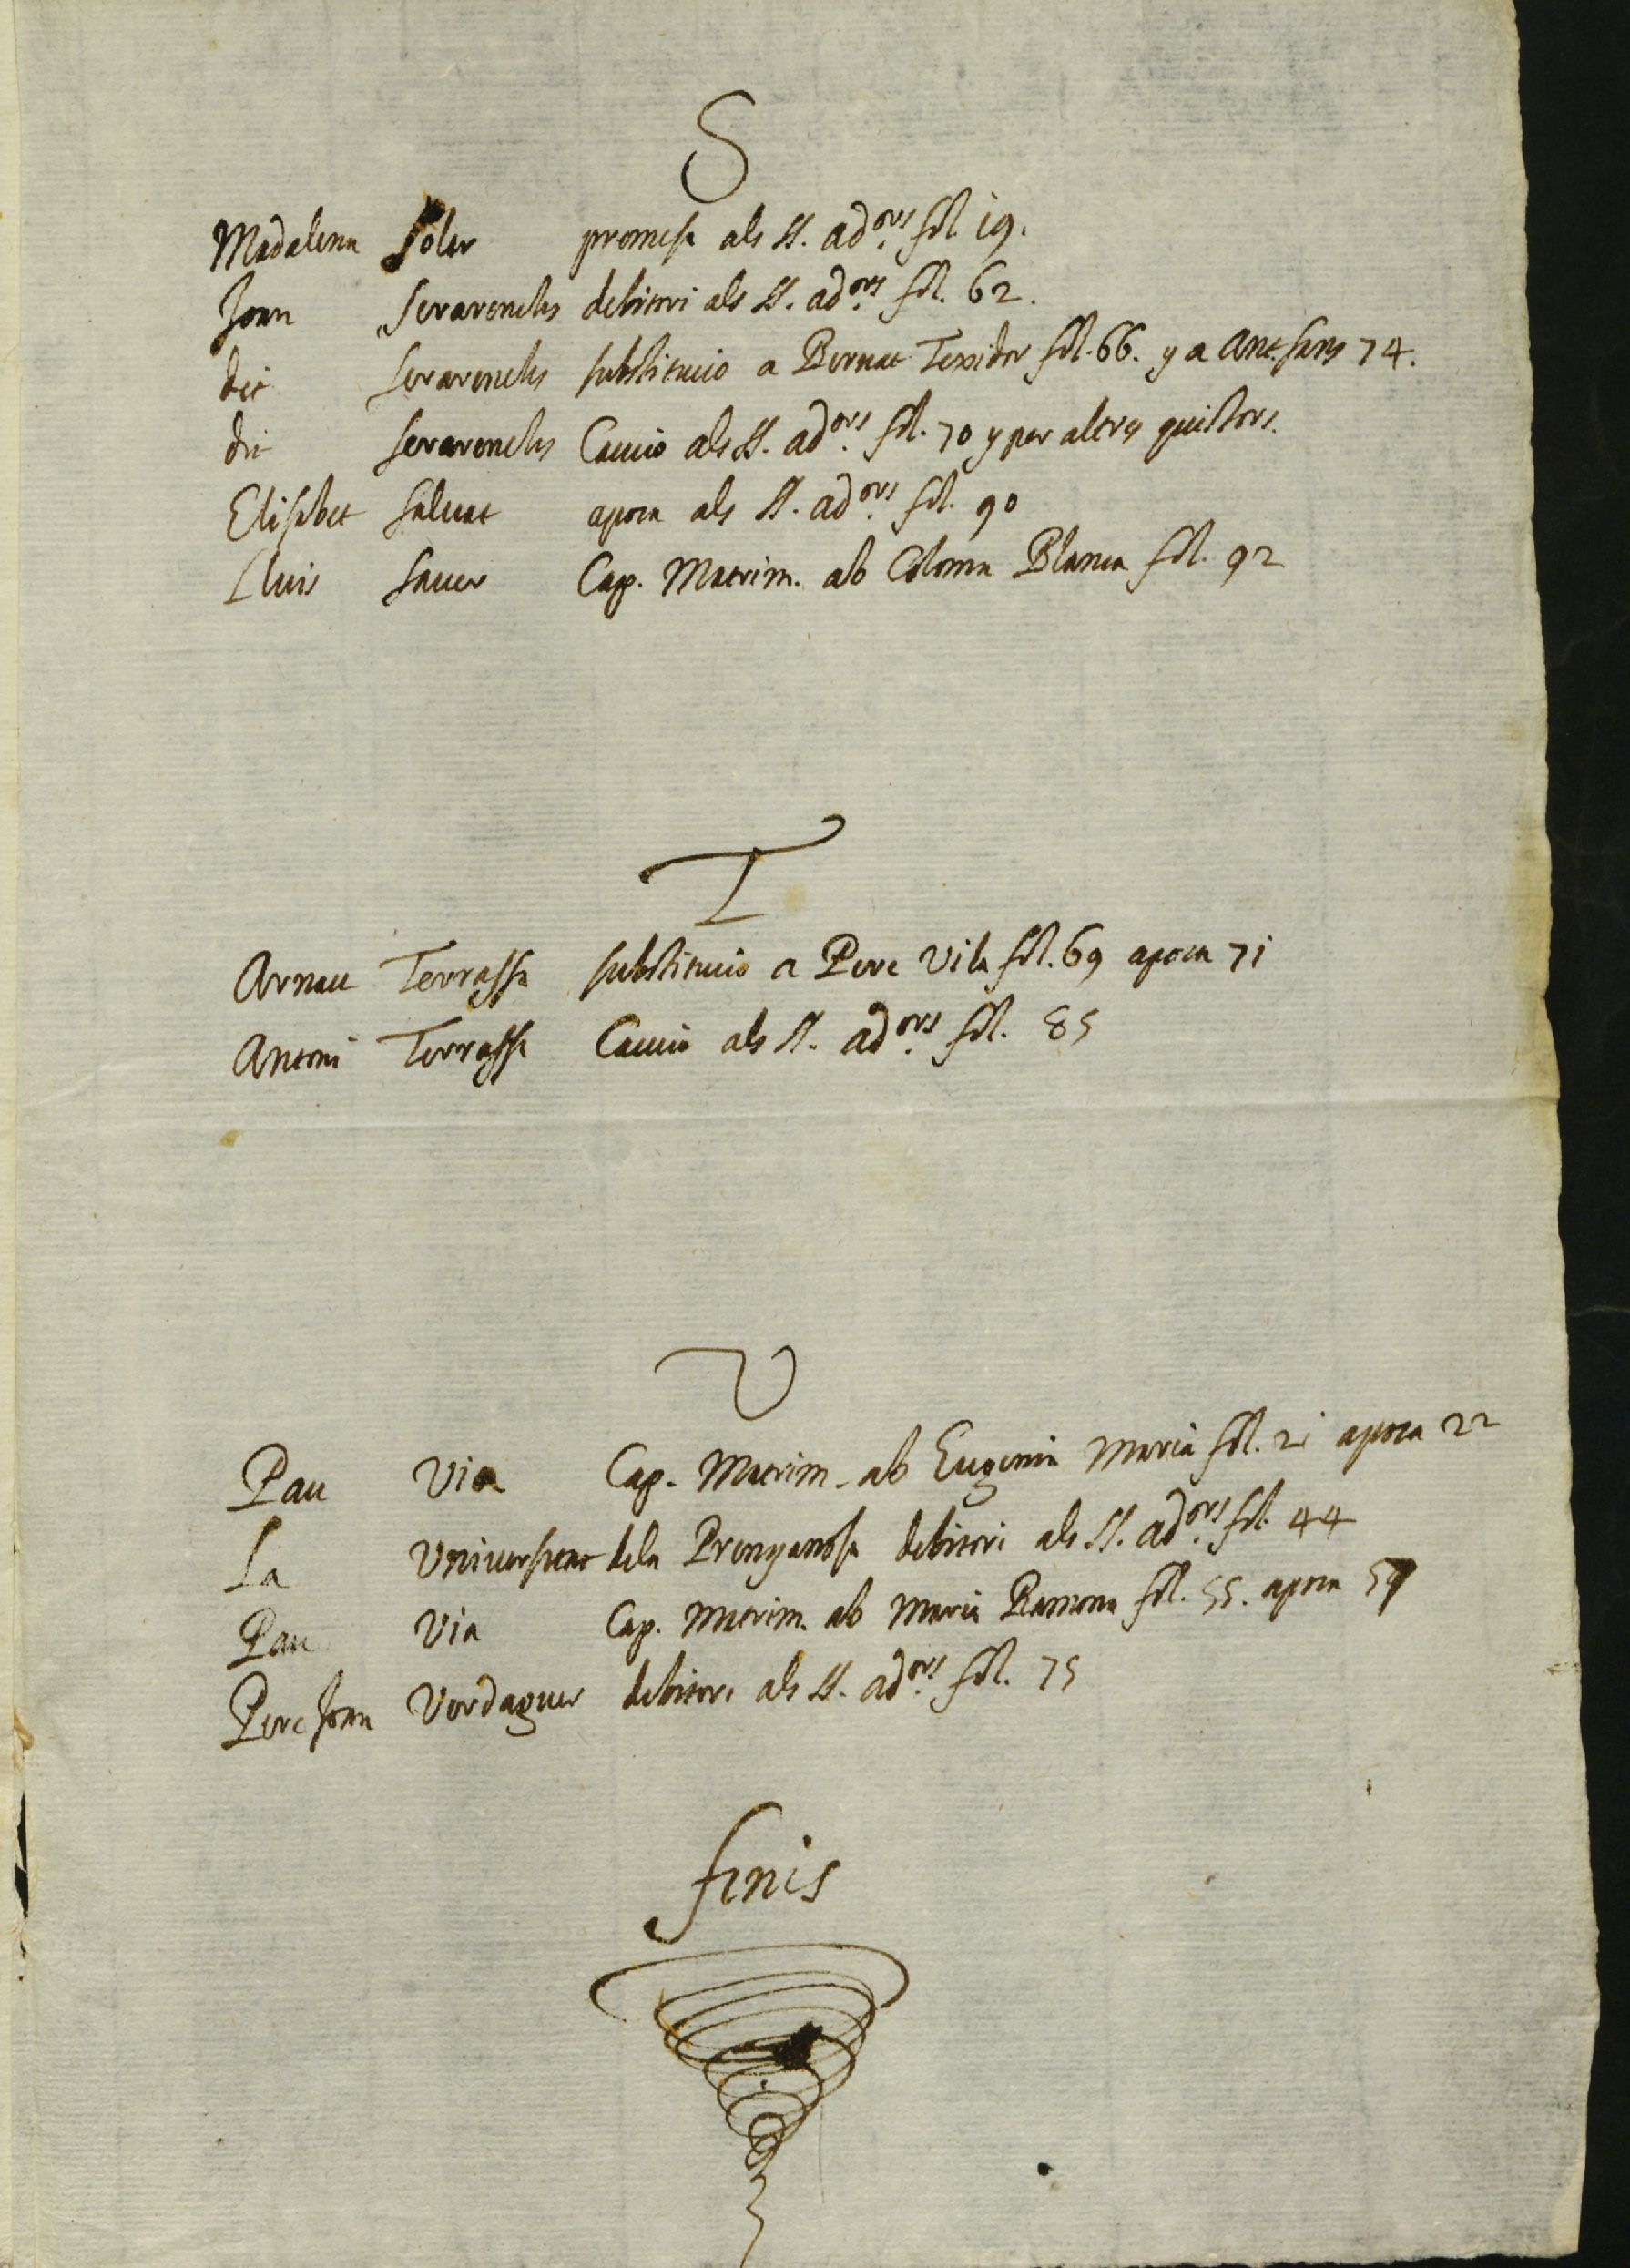 S
Madalena Soler promesa als SS. ad.ors fol. 19.
Joan Seraronelas debitori als SS. ad.ors fol. 62.
dit Seraronelas substitucio a Bernat Texidor fol. 66. y a Ant. Sans 74.
dit Seraronelas Caucio als SS. ad.ors fol. 70 y per altres quistors.
Elisabet Salvat apoca als SS. ad.ors fol. 90
Lluis Saver Cap. Matrim. ab Coloma Blanca fol. 92
T
Arnau Terrassa substitucio a Pere Vila fol. 69 apoca 71
Antoni Terrassa Caucio als SS. ad.ors fol. 85
V
Pau Via Cap. Matrim. ab Eugenia Maria fol. 21 apoca 22
La Universitat dela Prenyanosa debitori als SS. ad.ors fol. 44
Pau Via Cap. Matrim. ab Maria Ramona fol. 55. apoca
Pere Joan Verdaguer debitori als SS. ad.ors fol. 75
finis